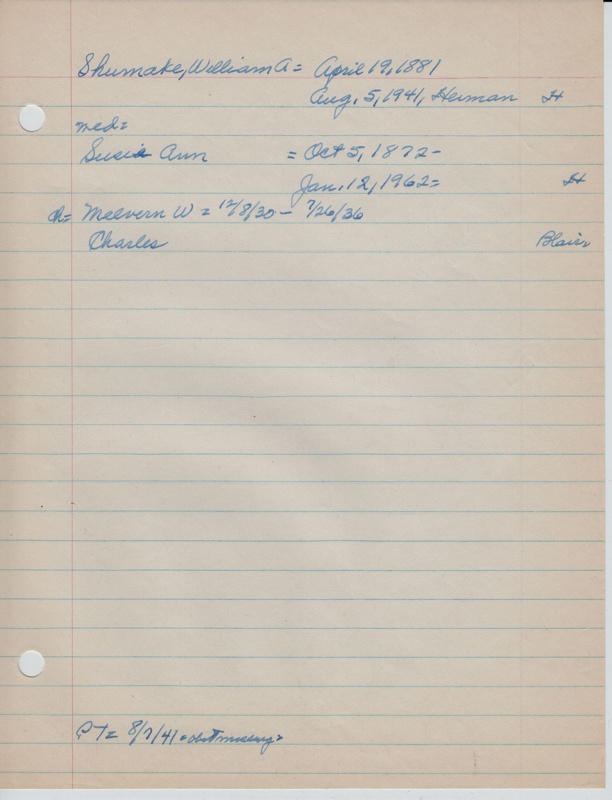 Shumake, William A = April 19, 1881
Aug. 5, 1941, Herman H
med=
Susie Ann = Oct 5, 1872-
Jan. 12, 1962= H
ch= Melvern W = 12/8/30 - 7/26/36
Charles Blair
PT= 8/7/41 = obit missing=